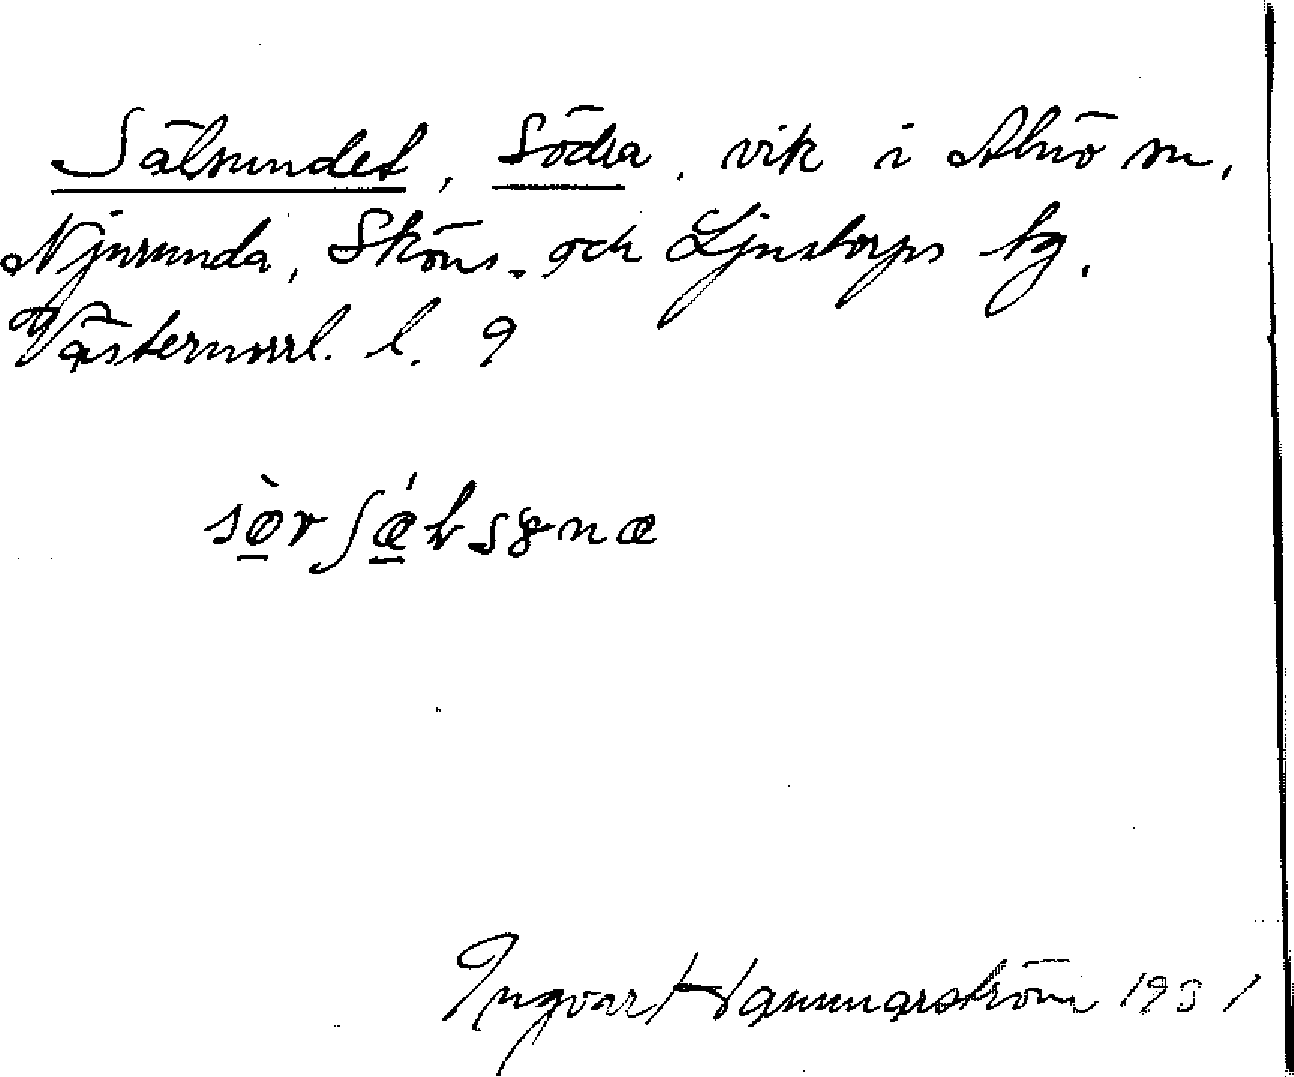 Sälsundet, Södra, vik i Alnö sn,
Njurunda, Sköns- och Ljustorps tg,
Västernorrl. l. 9
Ingvar Hammarström 1931